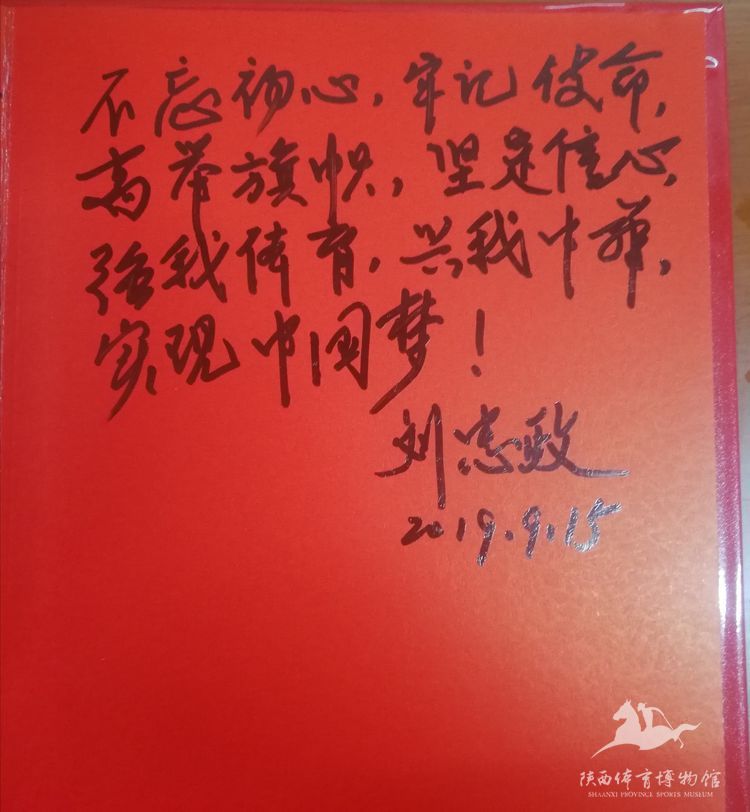 不忘初心，牢记使命，
高举旗帜，坚定信心，
强我体育，兴我中华，
实现中国梦！
刘忠政
2019.9.15
陕西体育博物馆
SHAANXI PROVINCE SPORTS MUSEUM